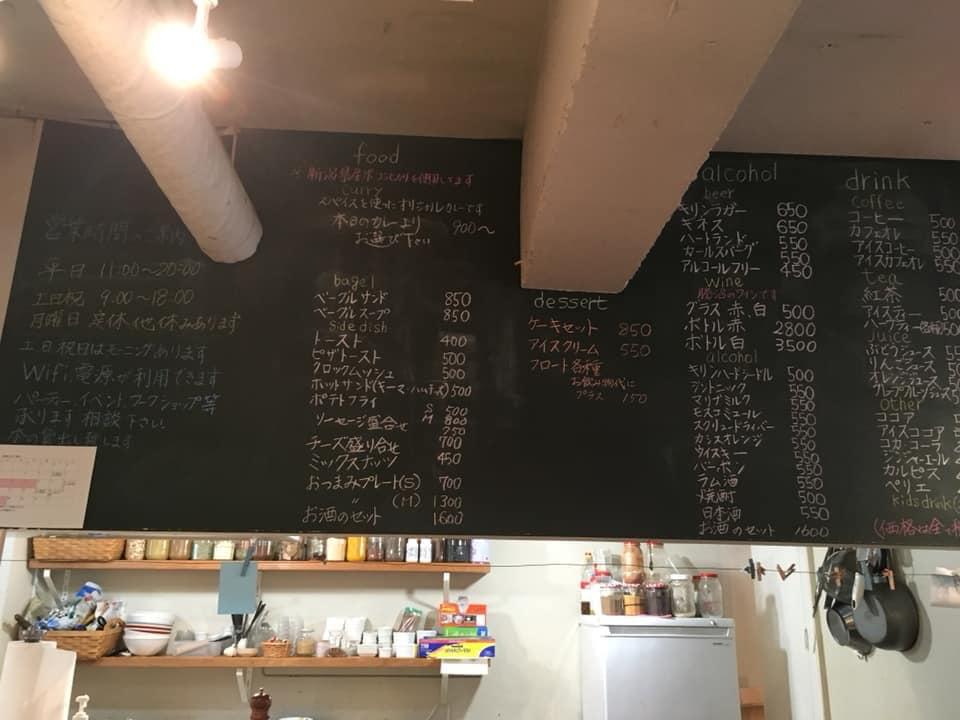 営業時間
平日 11:00〜20:00
土日祝 9:00〜18:00
月曜日 定休 他休みあります
土日祝日はモーニングあります
WiFi,電源が利用できます
パーティー,イベント,ワークショップ等
承ります 相談下さい
food
※新潟県産米コシヒカリを使用してます
curry
スパイスを使ったオリジナルカレーです
本日のカレーより 900〜
お選び下さい
bagel
ベーグルサンド 850
ベーグルスープ 850
Side dish
トースト 400
ピザトースト 500
クロックムッシュ 500
ホットサンド(キーマ・ハムチーズ)500
ポテトフライ
S 500
ソーセージ盛合せ M 800
250
チーズ盛り合せ 700
ミックスナッツ 450
おつまみプレート(S) 700
〃 (M) 1300
お酒のセット 1600
dessert
ケーキセット 850
アイスクリーム 550
フロート 各種
お飲み物代に
プラス 150
alcohol
beer
キリンラガー 650
ギネス 650
ハートランド 550
カールスバーグ 550
アルコールフリー 450
Wine
グラス 赤、白 500
ボトル 赤 2800
ボトル 白 3500
alcohol
キリンハードシードル 500
ジントニック 550
マリブミルク 550
モスコミュール 550
スクリュードライバー 550
カシスオレンジ 550
ウイスキー 550
バーボン 550
ラム酒 550
焼酎 500
日本酒 550
お酒のセット 1600
drink
coffee
コーヒー 500
カフェオレ 550
アイスコーヒー 500
アイスカフェオレ 550
tea
紅茶 500
アイスティー 500
ハーブティー
juice
ぶどうジュース 55
りんごジュース
オレンジジュース
グレープフルーツジュース
other
ココア
アイスココア
コカ・コーラ
ジンジャーエール
カルピス
ペリエ
kids drink
(価格は全て